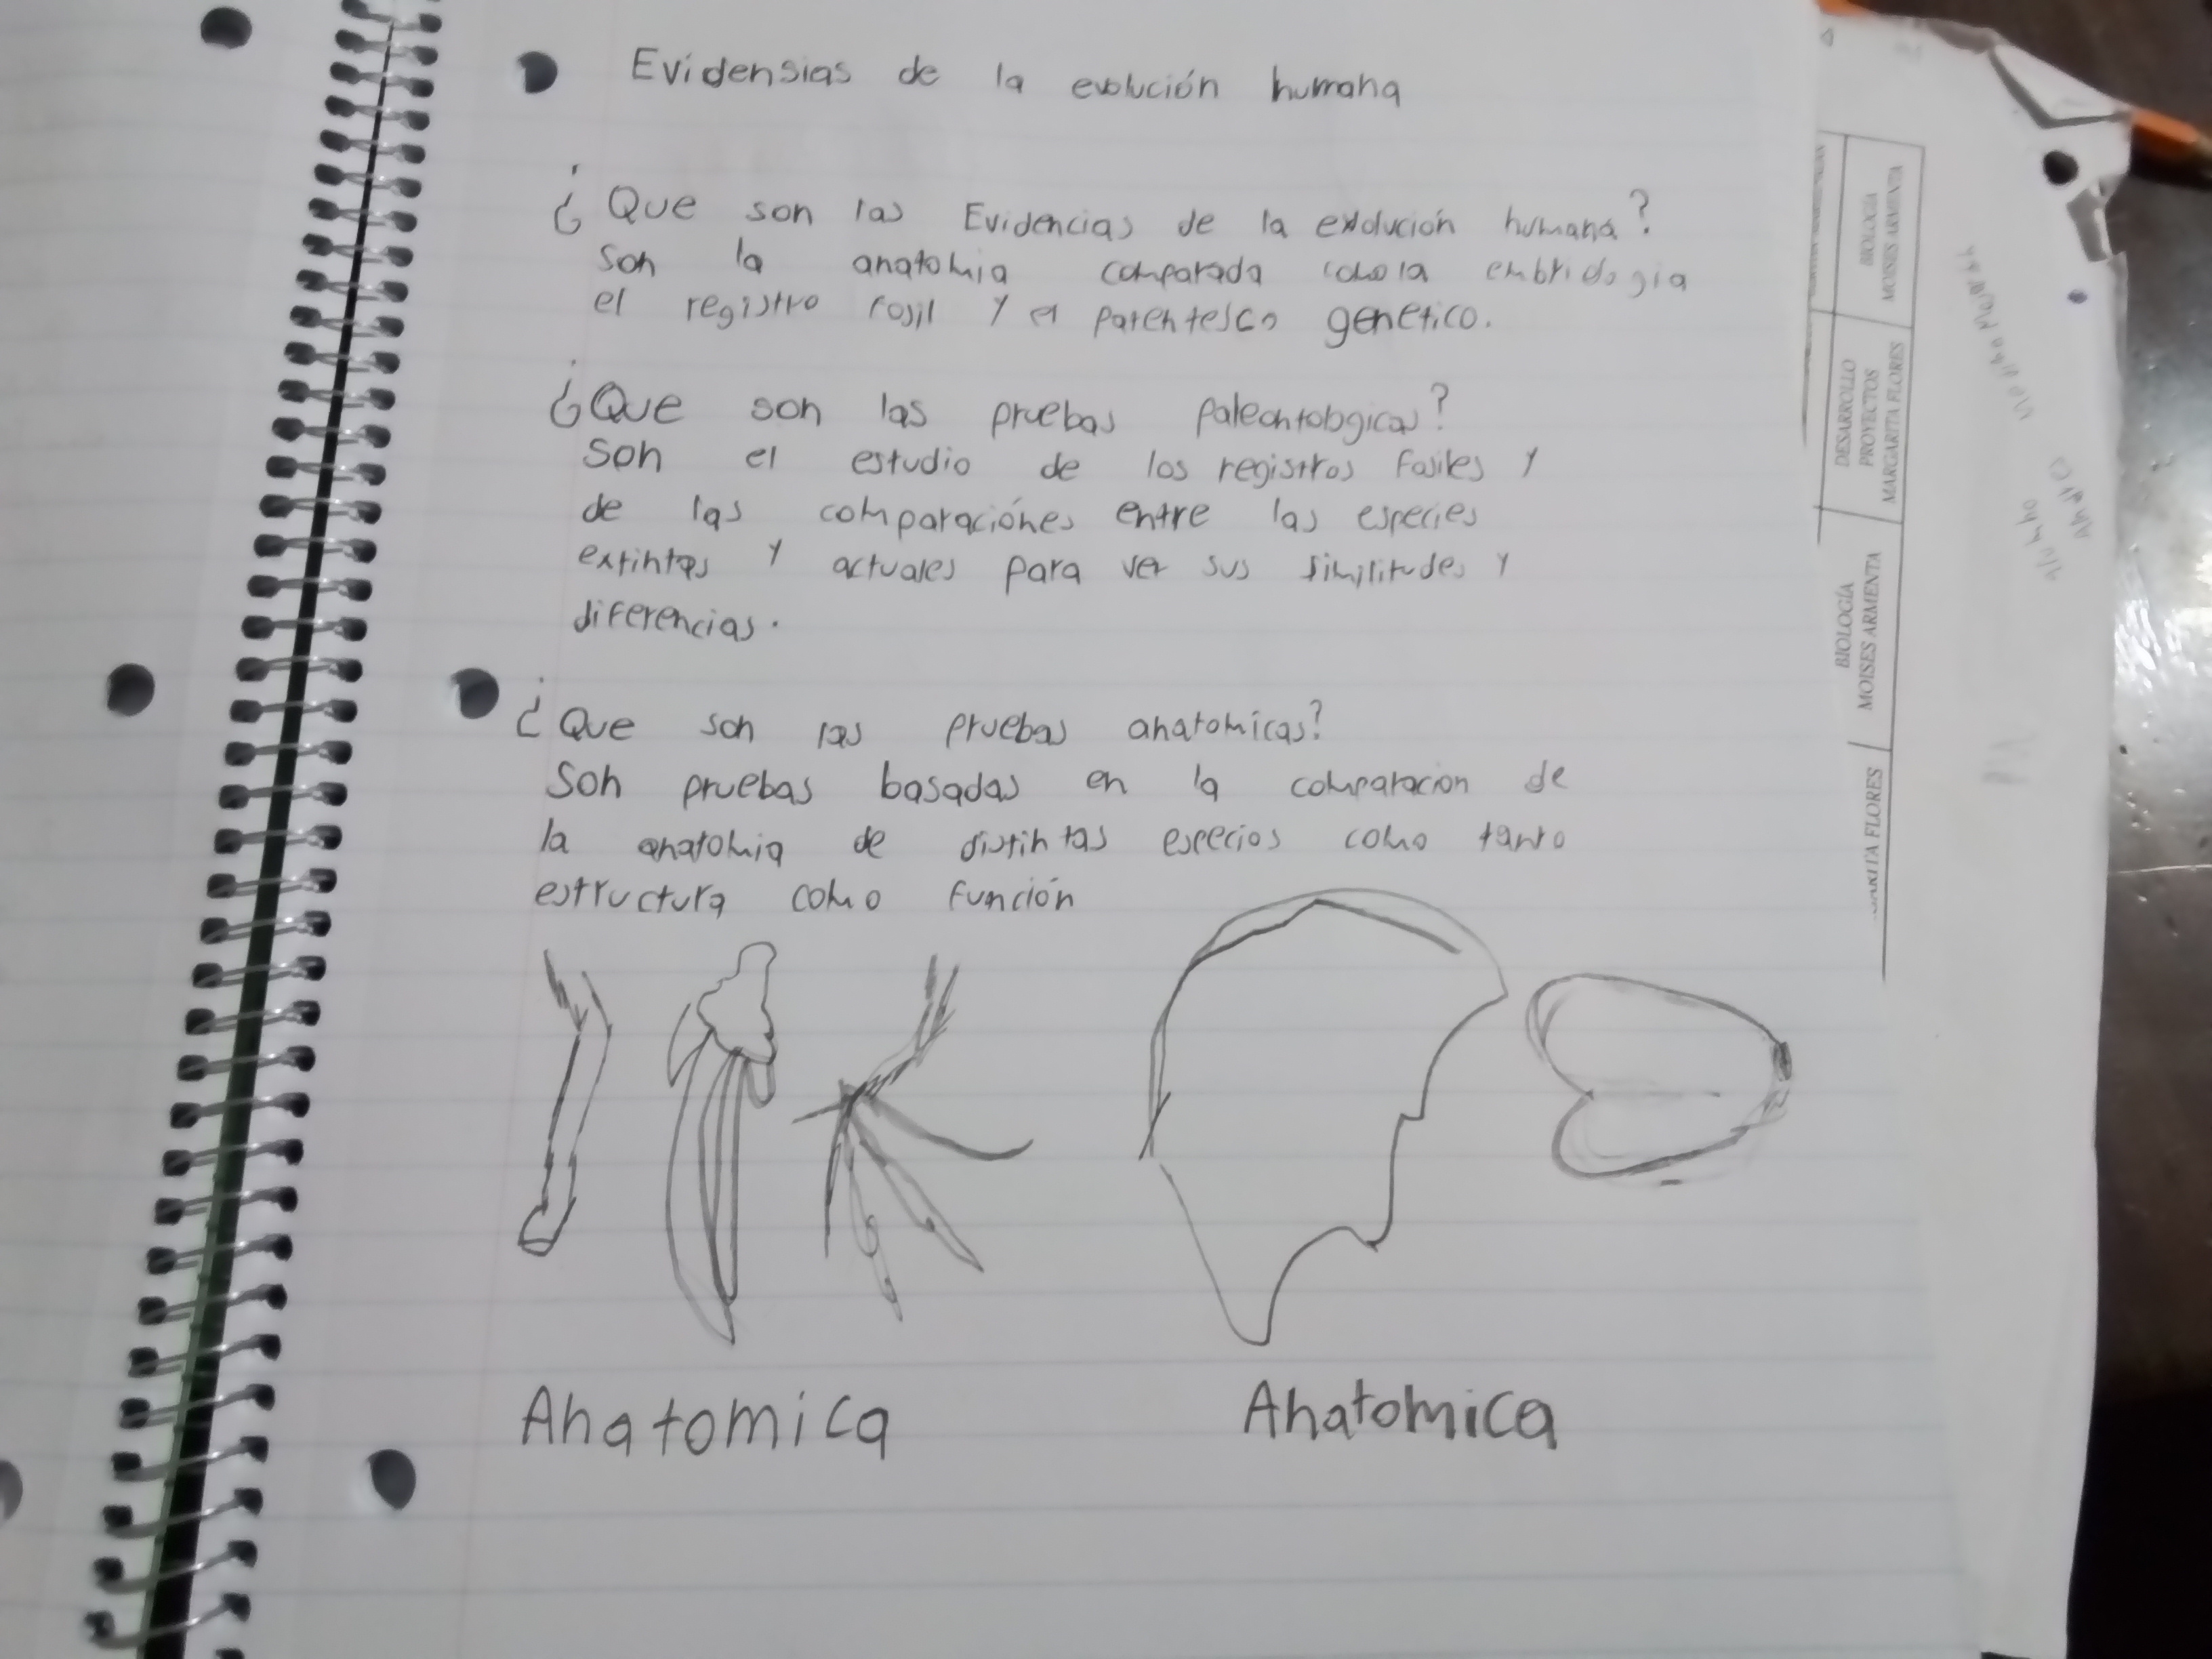 Evidensias de la evolución humana
¿Que son las Evidencias de la evolución humana?
Son la anatomia comparada como la embriologia
el registro fosil y el parentesco genetico.
¿Que son las pruebas paleontologicas?
Son el estudio de los registros fosiles y
de las comparaciónes entre las especies
extintas y actuales para ver sus similitudes y
diferencias.
¿Que son las pruebas anatomicas?
Son pruebas basadas en la comparacion de
la anatomia de distintas especios como tanto
estructura como función
Anatomica
Anatomica
BIOLOGÍA
MOISES ARMENTA
DESARROLLO
PROYECTOS
MARGARITA FLORES
BIOLOGÍA
MOISES ARMENTA
ARITA FLORES